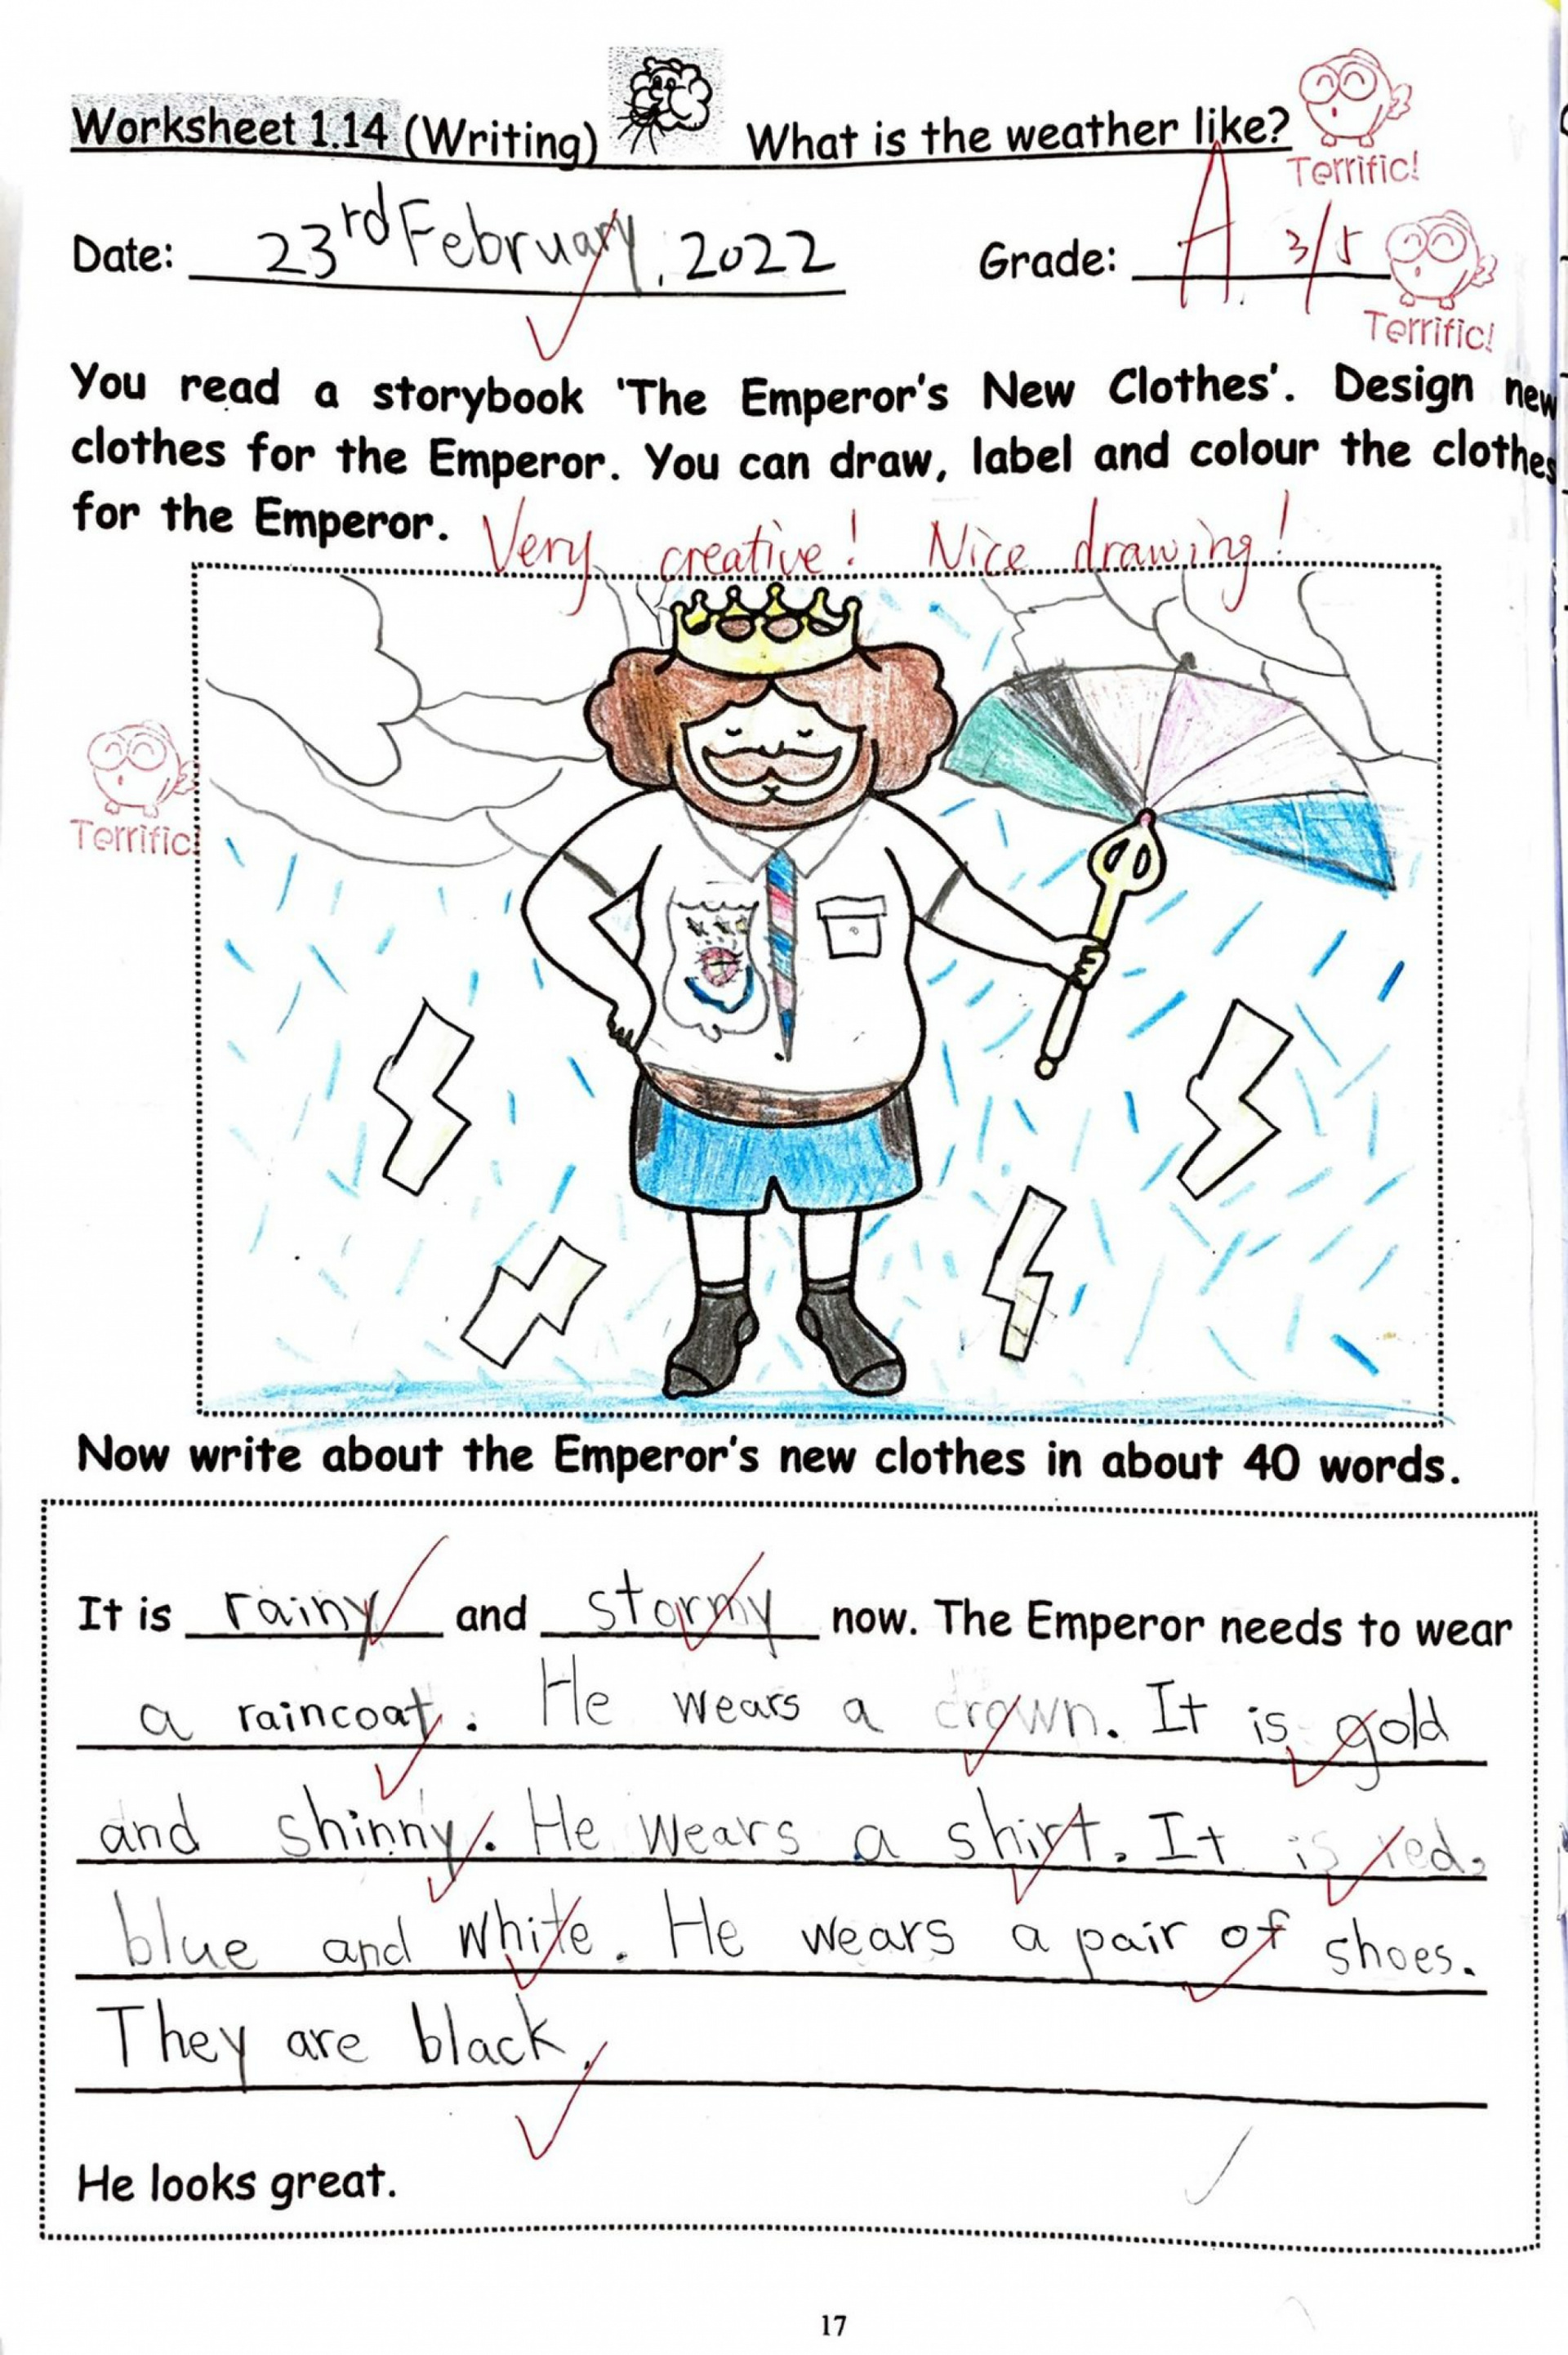 Worksheet 1.14 (Writing) What is the weather like?
Terrific!
Date: 23rd February, 2022 Grade: A 3/5
Terrific!
You read a storybook 'The Emperor's New Clothes'. Design new
clothes for the Emperor. You can draw, label and colour the clothes
for the Emperor. Very creative! Nice drawing!
Terrific!
Now write about the Emperor's new clothes in about 40 words.
It is rainy and stormy now. The Emperor needs to wear
a raincoat. He wears a crown. It is gold
and shinny. He wears a shirt. It is red,
blue and white. He wears a pair of shoes.
They are black.
He looks great.
17